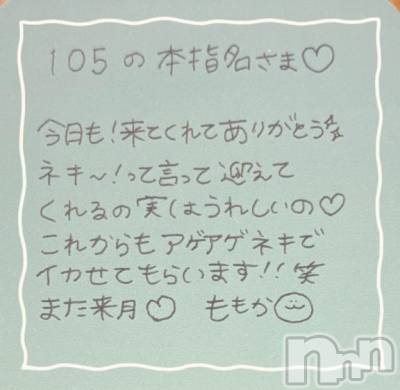 105の本指名さま♡
今日も!来てくれてありがとう☆
ネキ〜!って言って迎えて
くれるの実はうれしいの♡
これからもアゲアゲネキで
イカせてもらいます!!笑
また来月♡ ももか☺
nnn